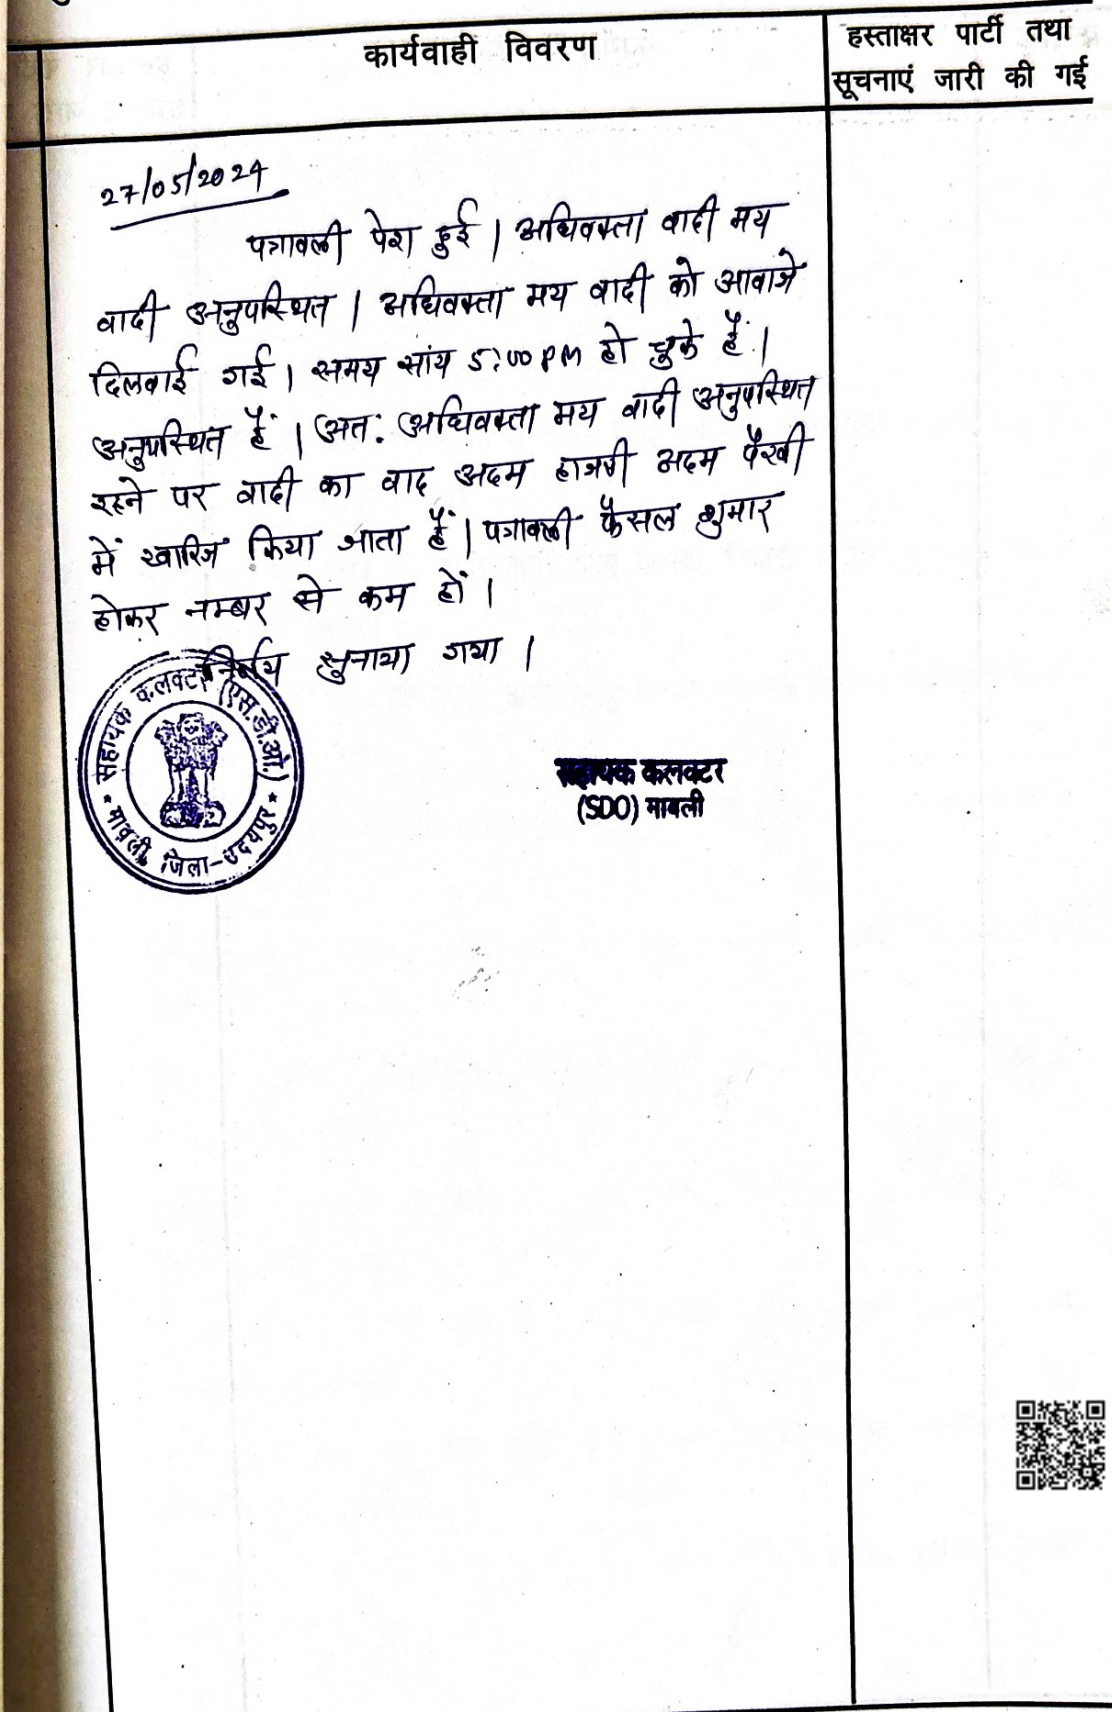 कार्यवाही विवरण
हस्ताक्षर पार्टी तथा
सूचनाएं जारी की गई
27/05/2024
पत्रावली पेश हुई । अधिवक्ता वादी मय
वादी अनुपस्थित । अधिवक्ता मय वादी को आवाजे
दिलवाई गई । समय सांय 5:00 PM हो चुके हैं ।
अनुपस्थित हैं । अत: अधिवक्ता मय वादी अनुपस्थित
रहने पर वादी का वाद अदम हाजरी अदम पैरवी
में खारिज किया जाता हैं । पत्रावली फैसल शुमार
होकर नम्बर से कम हों ।
निर्णय सुनाया गया ।
सहायक कलक्टर (एस.डी.ओ.)
मावली, जिला-उदयपुर
सहायक कलक्टर
(SDO) मावली